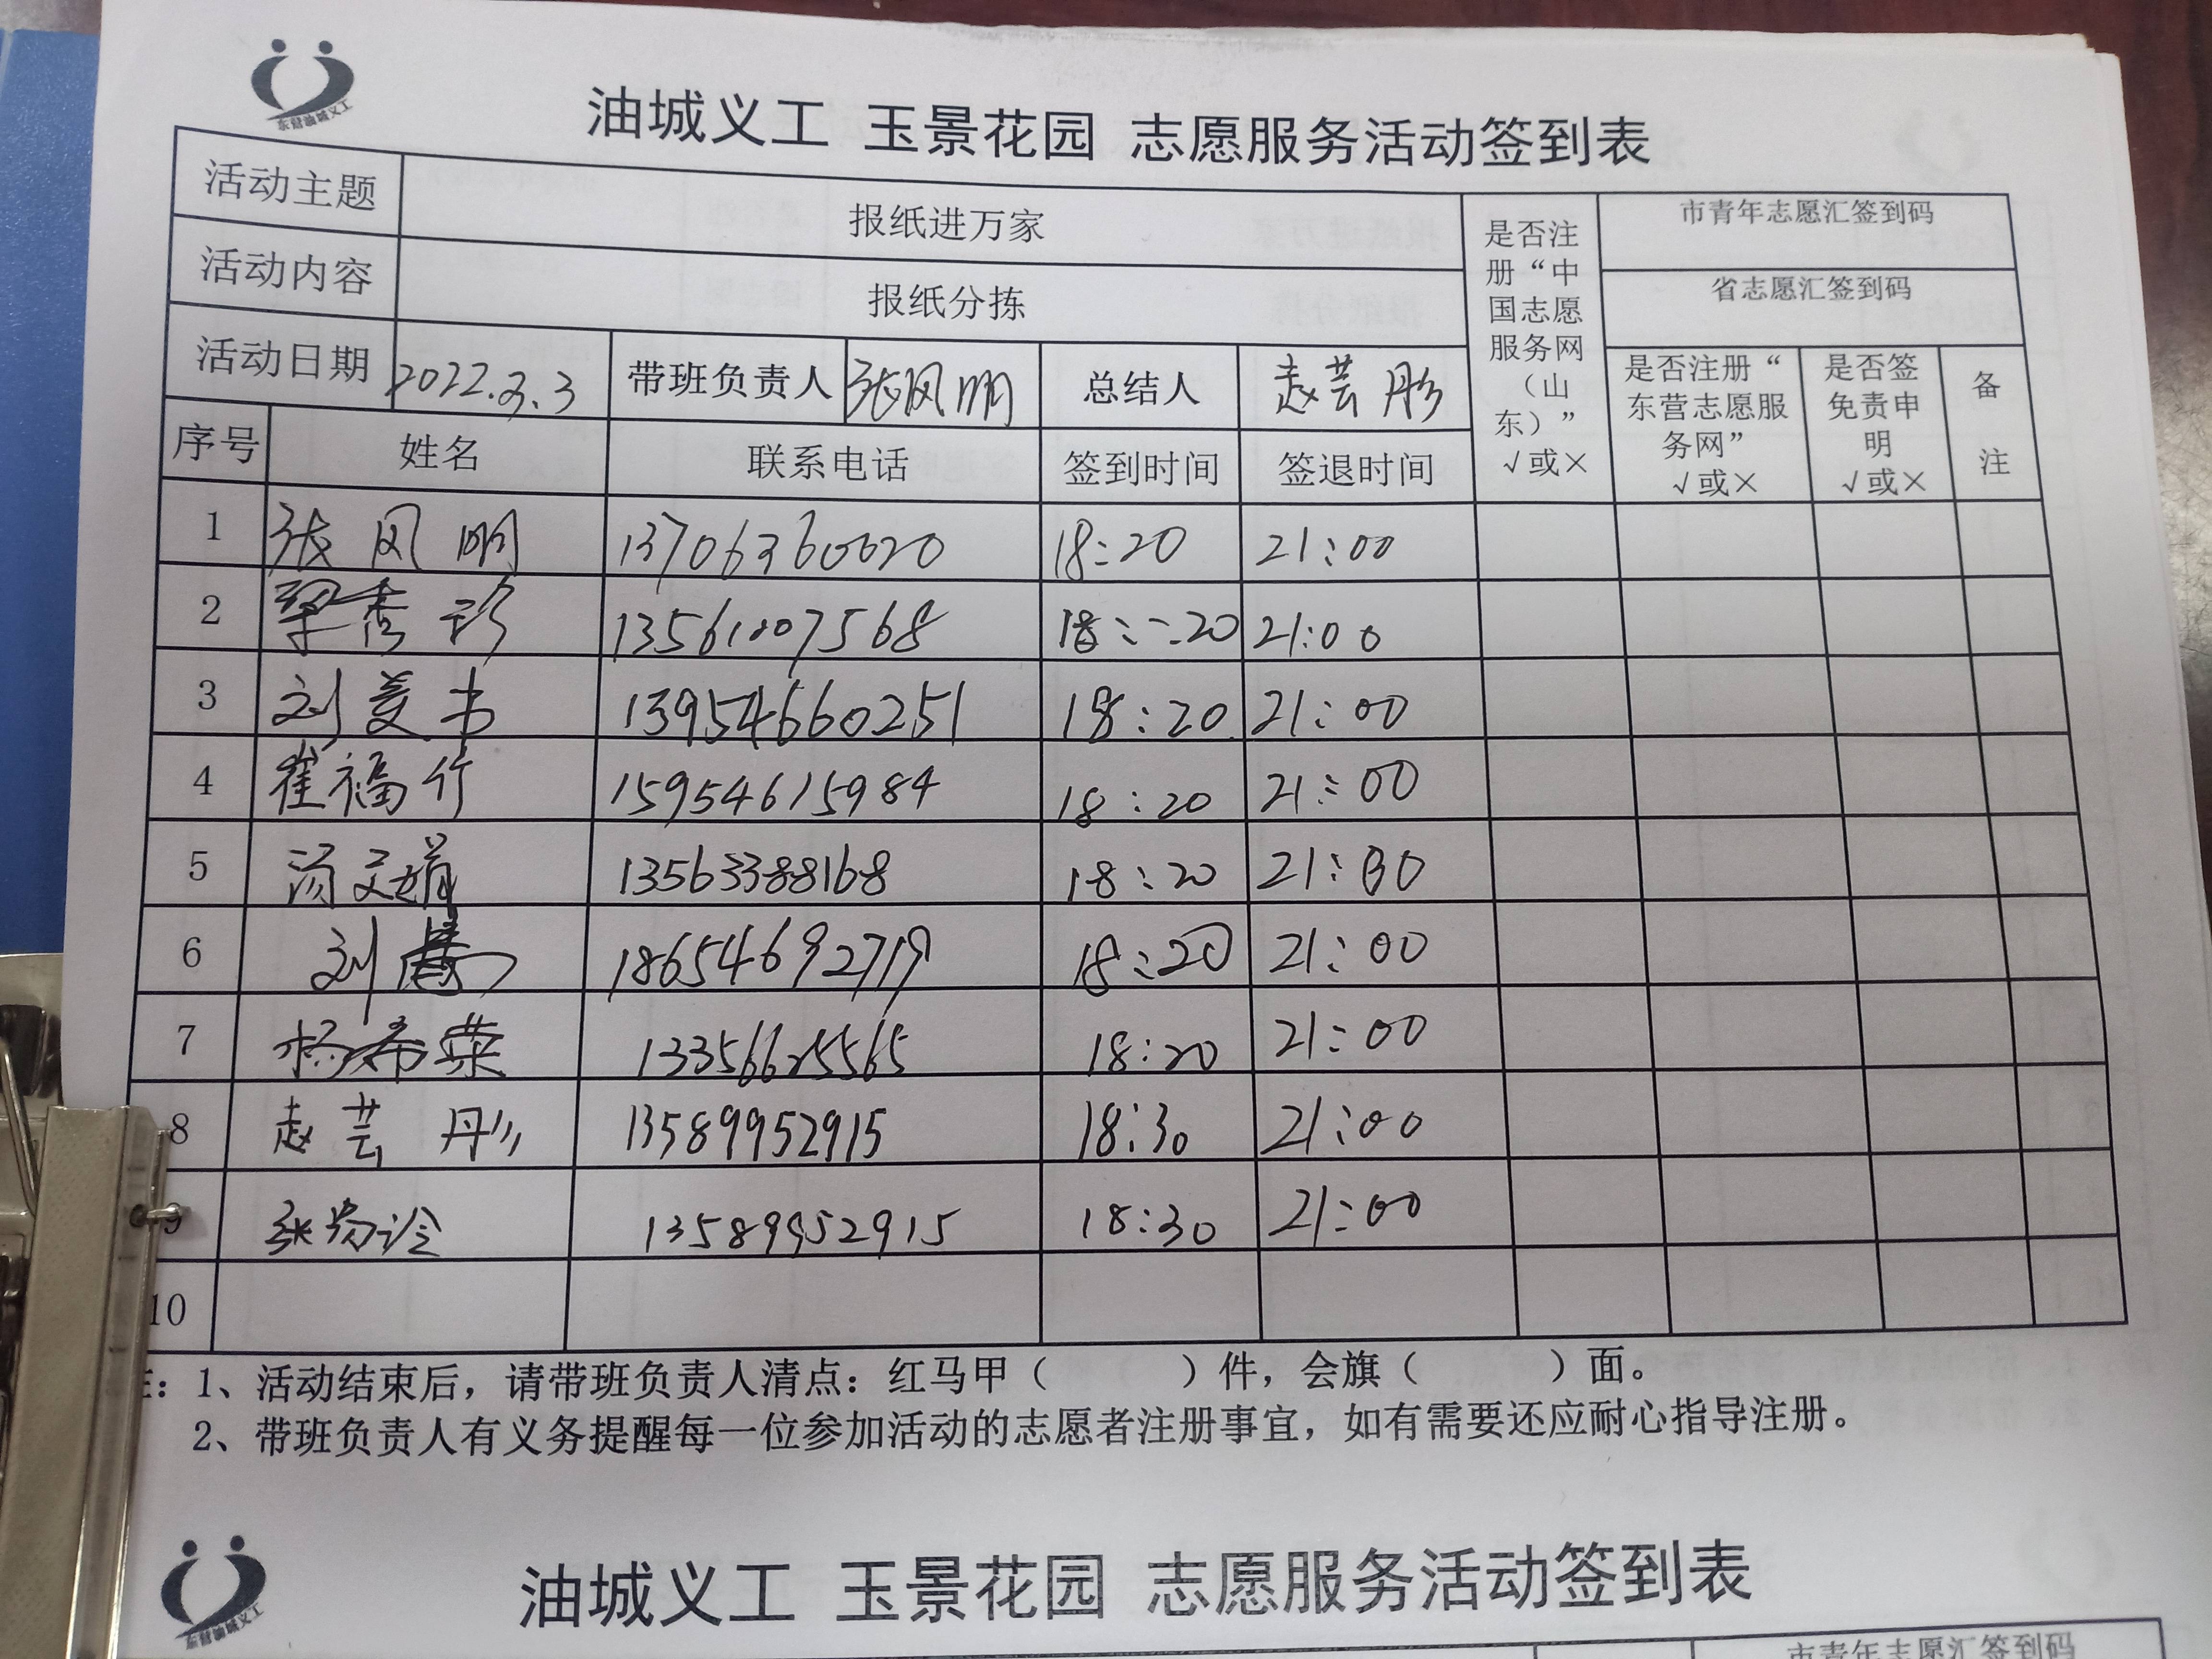 东营油城义工
油城义工 玉景花园 志愿服务活动签到表
活动主题 报纸进万家
活动内容 报纸分拣
活动日期 2022.3.3 带班负责人 张风明 总结人 赵芸彤
是否注册“中国志愿服务网（山东）” √或×
市青年志愿汇签到码
省志愿汇签到码
是否注册“东营志愿服务网” √或×
是否签免责申明 √或×
备注
序号 姓名 联系电话 签到时间 签退时间
1 张风明 13706360020 18:20 21:00
2 梁秀珍 13561007568 18:20 21:00
3 刘美书 13954660251 18:20 21:00
4 崔福竹 15954615984 18:20 21:00
5 汤文娟 13563388168 18:20 21:00
6 刘 18654692719 18:20 21:00
7 杨希荣 13356625565 18:20 21:00
8 赵芸彤 13589952915 18:30 21:00
9 张 13589952915 18:30 21:00
10
：1、活动结束后，请带班负责人清点：红马甲（ ）件，会旗（ ）面。
2、带班负责人有义务提醒每一位参加活动的志愿者注册事宜，如有需要还应耐心指导注册。
东营油城义工
油城义工 玉景花园 志愿服务活动签到表
市青年志愿汇签到码